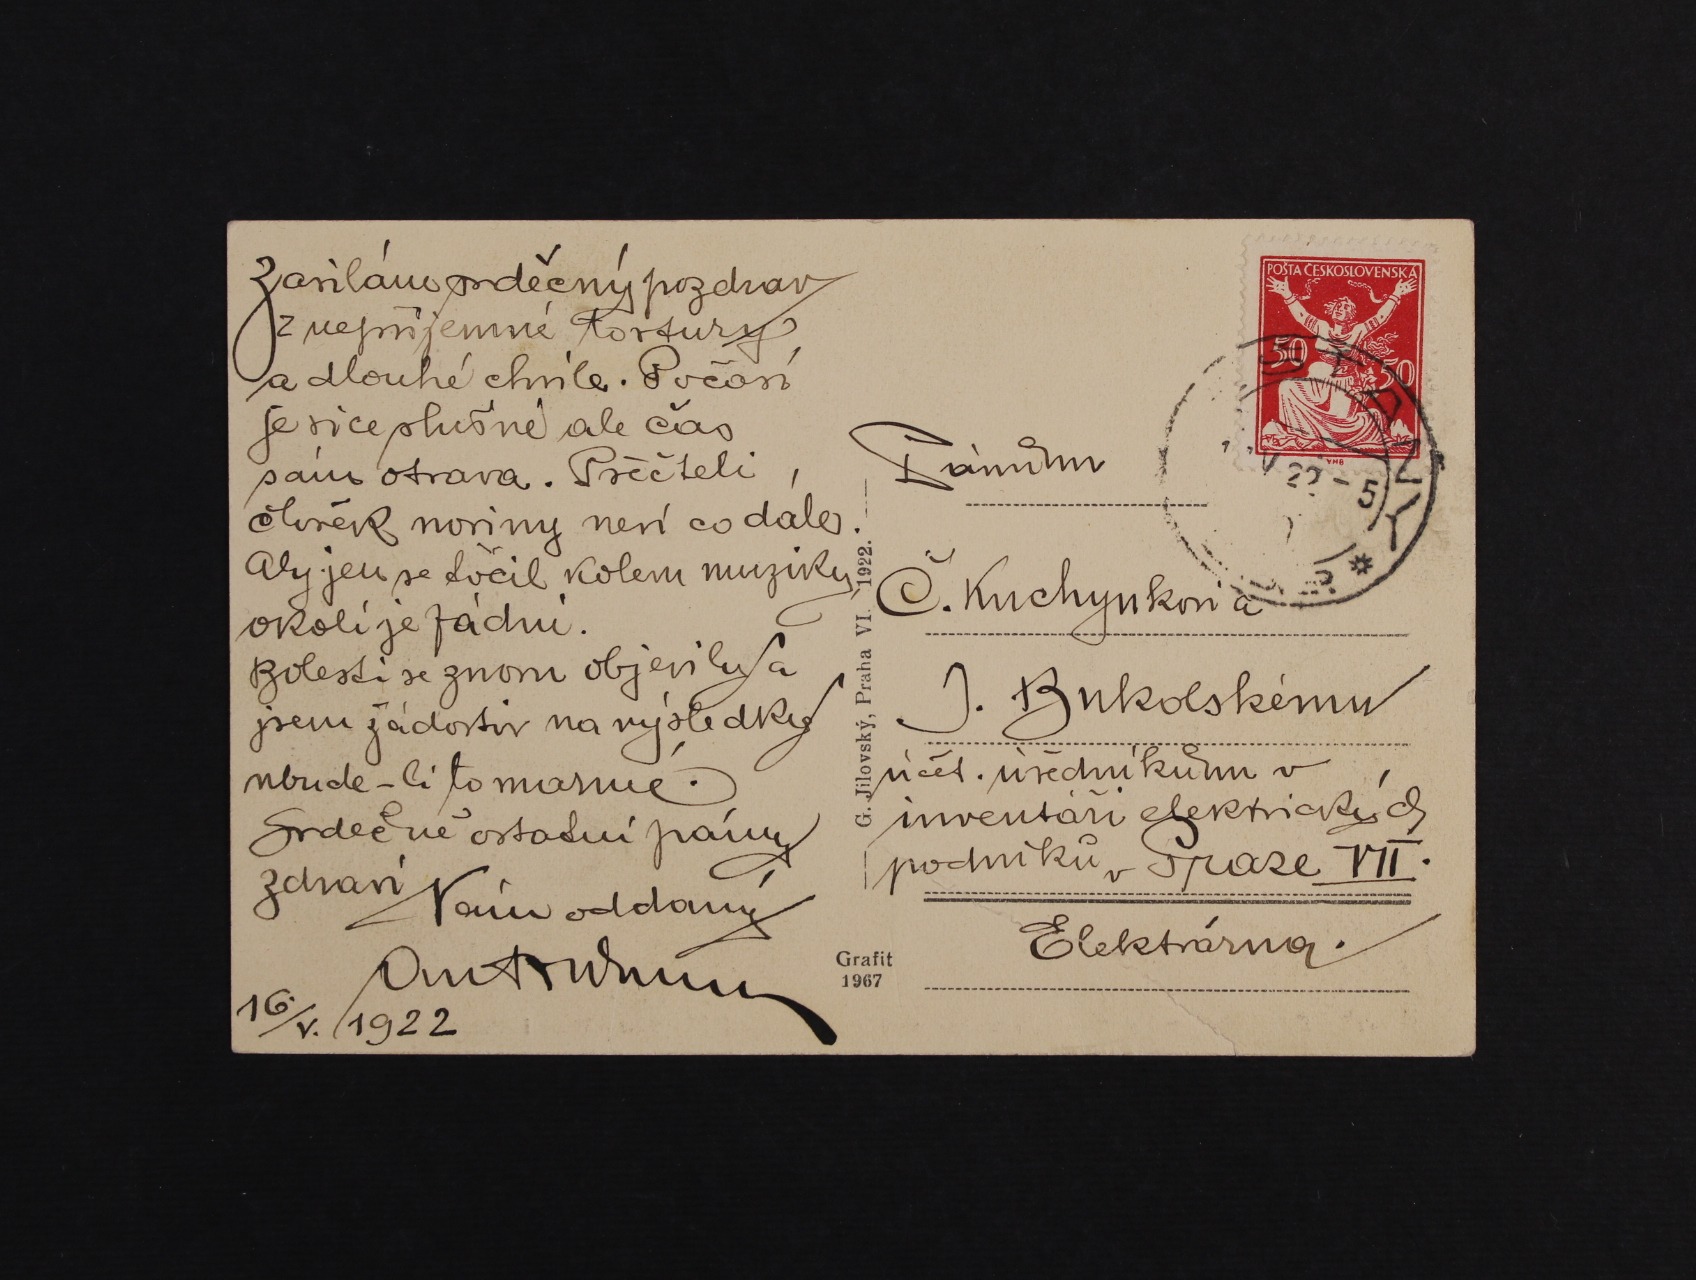 Zasílám srdečný pozdrav
z nepříjemné tortury
a dlouhé chvíle. Počasí
je sice slušné ale čas
sám otrava. Přečteli
člověk noviny není co dále.
Aby jen se točil kolem muziky,
okolí je fádní.
Bolesti se znovu objevily a
jsem žádostiv na výsledky
nbude-li to marné.
Srdečně ostatní pány
zdraví Vám oddaný
16/V. 1922
POŠTA ČESKOSLOVENSKÁ
50 50
22-5
Pánům
Č. Kuchynkovi a
J. Bukolskému
účet. úředníkům v
inventáři elektrických
podniků v Praze VII.
Elektrárna.
G. Jilovský, Praha VI. 1922.
Grafit
1967